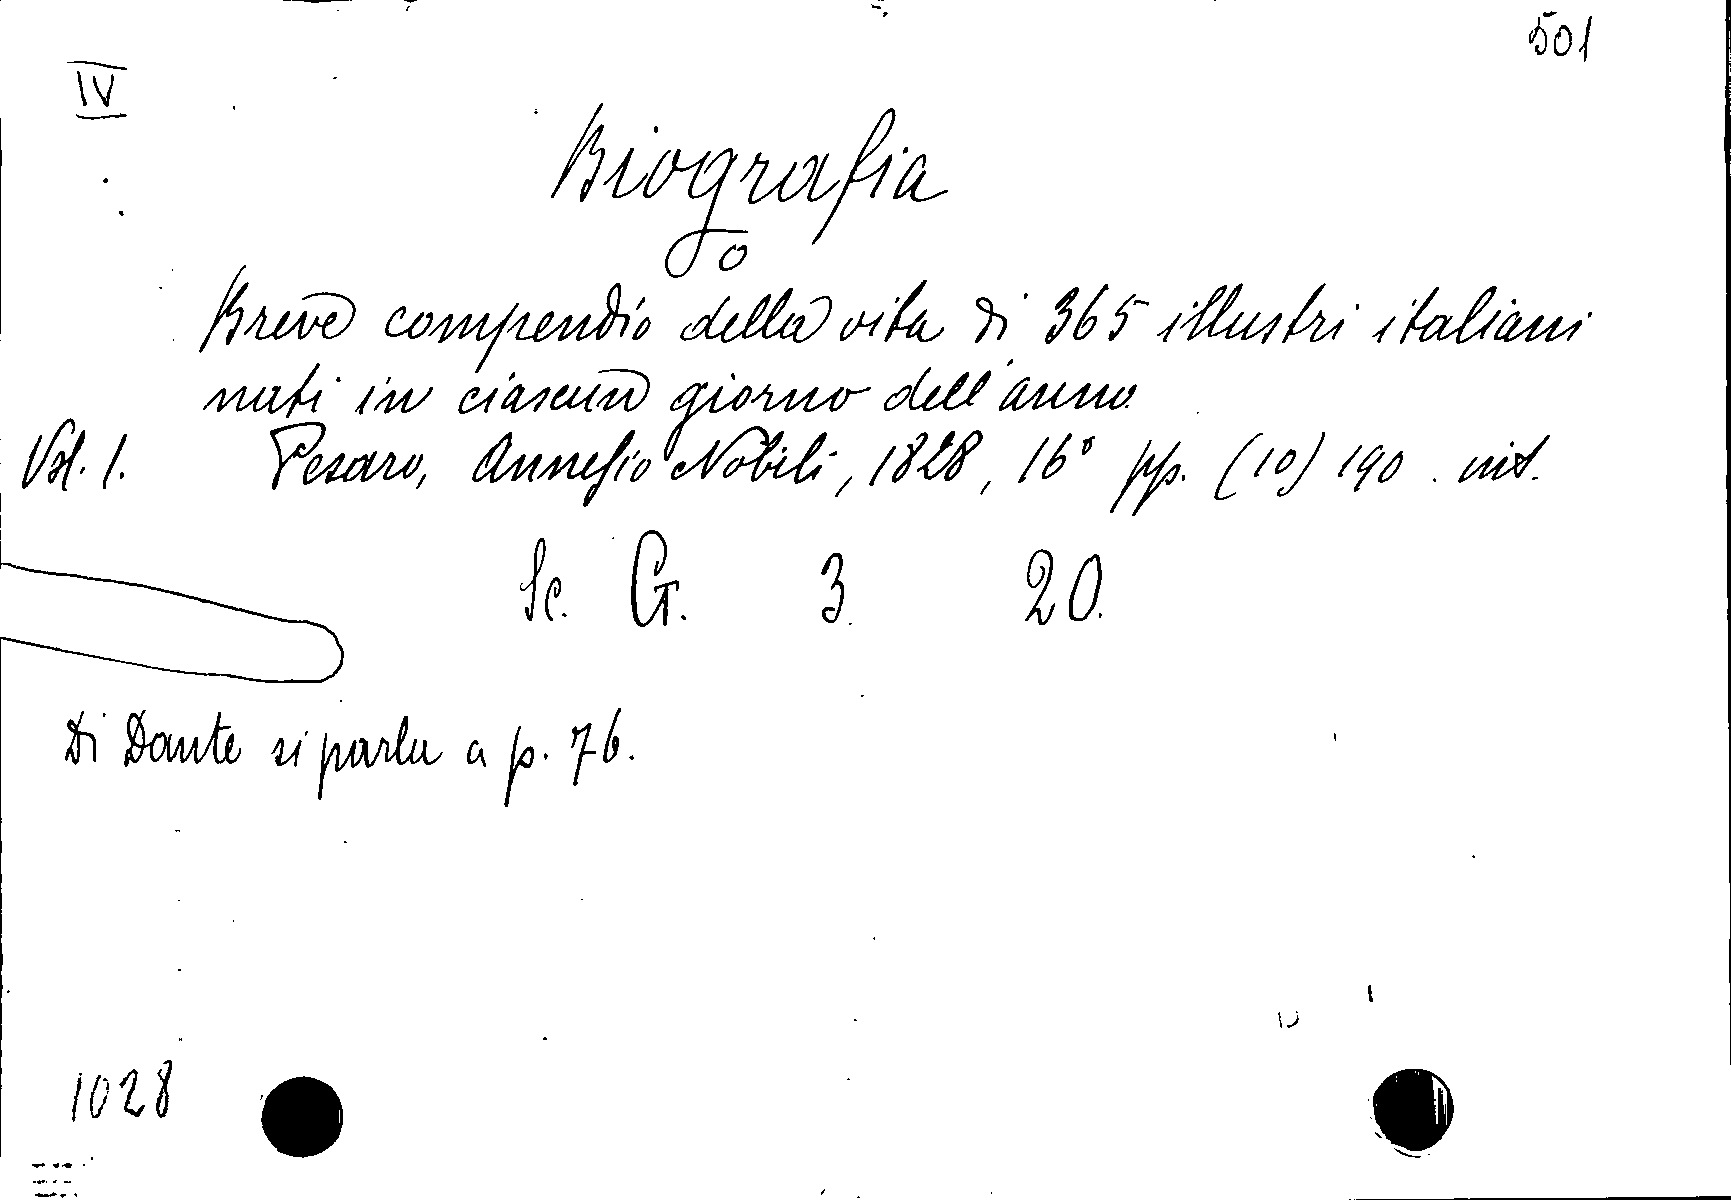 501
IV
Biografia
o
Breve compendio della vita di 365 illustri italiani
nati in ciascun giorno dell'anno
Vol. 1. Pesaro, Annesio Nobili, 1828, 16° pp. (10) 190. int.
Sc. G. 3 20.
Di Dante si parla a p. 76.
1028